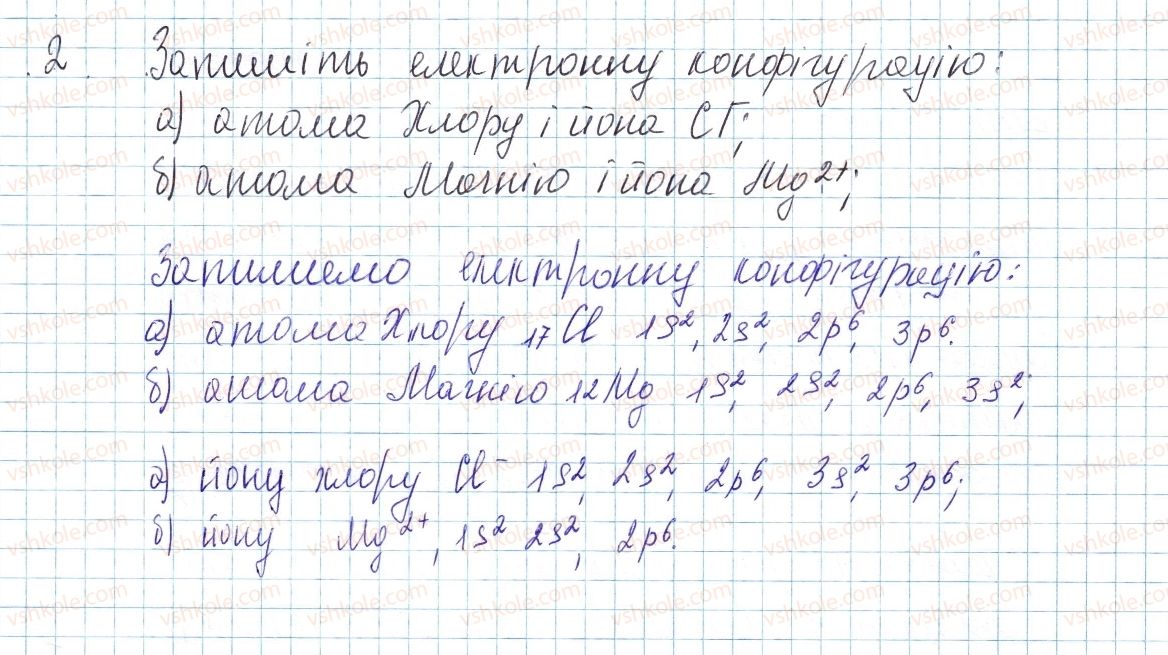 2. Запишіть електронну конфігурацію:
а) атома Хлору і йона Cl⁻;
б) атома Магнію і йона Mg²⁺;
Запишемо електронну конфігурацію:
а) атома Хлору ₁₇Cl 1s², 2s², 2p⁶, 3p⁶.
б) атома Магнію ₁₂Mg 1s², 2s², 2p⁶, 3s²;
а) йону хлору Cl⁻ 1s², 2s², 2p⁶, 3s², 3p⁶;
б) йону Mg²⁺, 1s² 2s², 2p⁶.